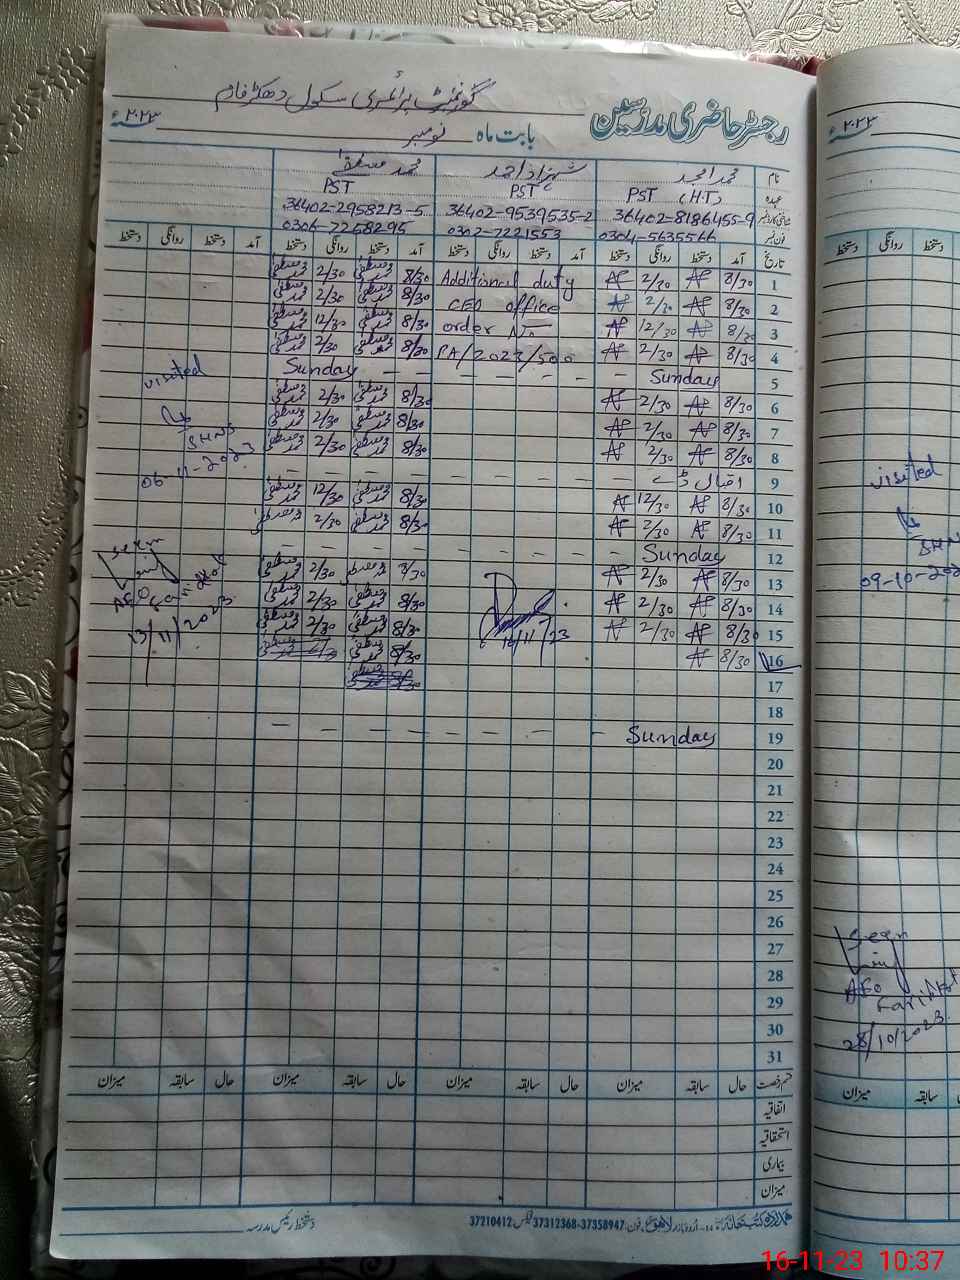 گورنمنٹ پرائمری سکول دھکڑ فارم
رجسٹر حاضری مدرسین
بابت ماہ نومبر ۲۰۲۳ء
نام محمد امجد شہزاد احمد محمد مصطفیٰ
عہدہ PST (H.T) PST PST
36402-8186455-9 36402-9539535-2 36402-2958213-5
فون نمبر 0304-5635566 0302-7221553 0306-7258295
تاریخ آمد دستخط روانگی دستخط آمد دستخط روانگی دستخط آمد دستخط روانگی دستخط آمد دستخط روانگی دستخط
1 8/30 2/30 Additional duty 8/30 2/30
2 8/30 2/30 CEO office 8/30 2/30
3 8/30 12/30 order No 8/30 12/30
4 8/30 2/30 PA/2023/500 8/30 2/30
5 Sunday - - - - - - - - Sunday
6 8/30 2/30 8/30 2/30
7 8/30 2/30 8/30 2/30
8 8/30 2/30 8/30 2/30
9 اقبال ڈے - - - - - - - -
10 8/30 12/30 8/30 12/30
11 8/30 2/30 8/30 2/30
12 Sunday - - - - - - - -
13 8/30 2/30 8/30 2/30
14 8/30 2/30 8/30 2/30
15 8/30 2/30 8/30 2/30
16 8/30 8/30
17
18
19 Sunday - - - - - - - -
20
21
22
23
24
25
26
27
28
29
30
31
16/11/23
visited
SHNS
06-11-2023
Seen
AEO
13/11/2023
قسم رخصت حال سابقہ میزان حال سابقہ میزان حال سابقہ میزان حال سابقہ میزان
اتفاقیہ
استحقاقیہ
بیماری
میزان
اردو بازار لاہور فون: 37358947-37312368 فیکس: 37210412
دستخط رئیس مدرسہ
۲۰۲۳ء
دستخط روانگی دستخط
visited
SHN
09-10-202
Seen
AEO
Farid Kot
28/10/2023
میزان سابقہ
16-11-23 10:37